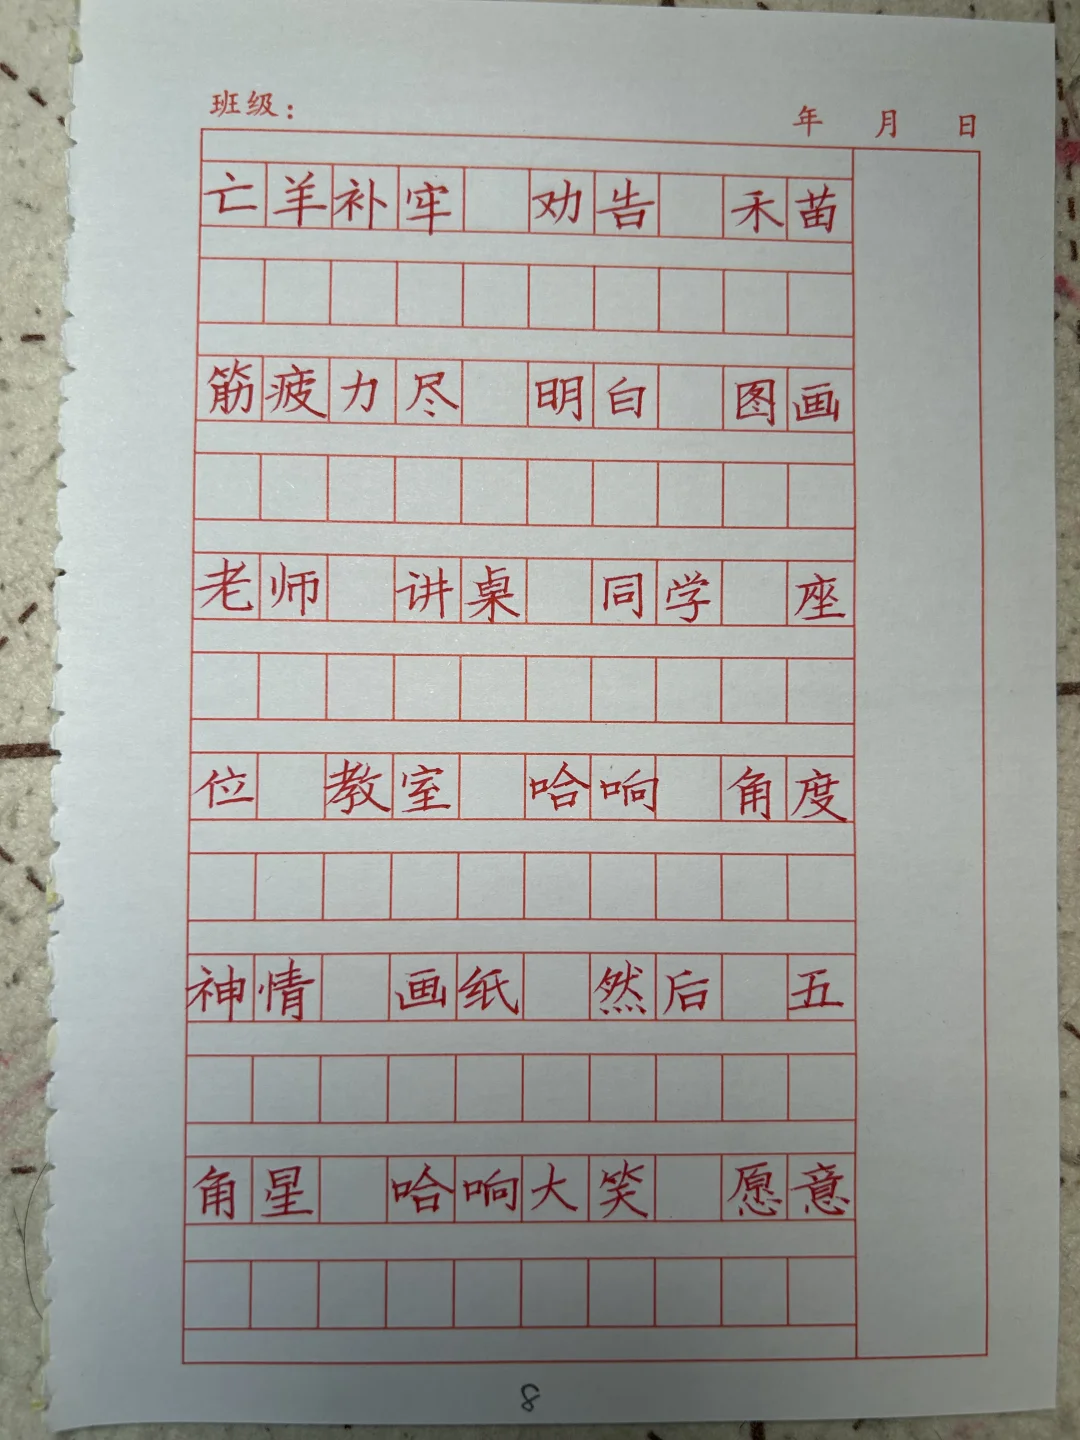 班级：
年 月 日
亡羊补牢 劝告 禾苗
筋疲力尽 明白 图画
老师 讲桌 同学 座
位 教室 哈响 角度
神情 画纸 然后 五
角星 哈响大笑 愿意
8